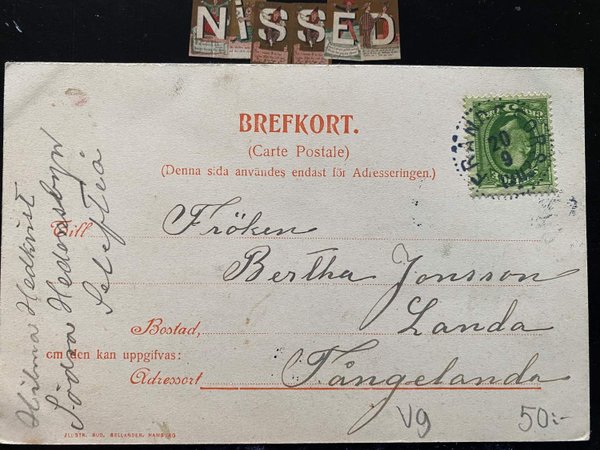 NISSED
BREFKORT.
(Carte Postale)
(Denna sida användes endast för Adresseringen.)
Till Fröken
Bertha Jonsson
Bostad, Landa
om den kan uppgifvas:
Adressort Tångelanda
V9 50:-
Hilma Hedkvist
Södra Hedensbyn
Skelefteå
20
9